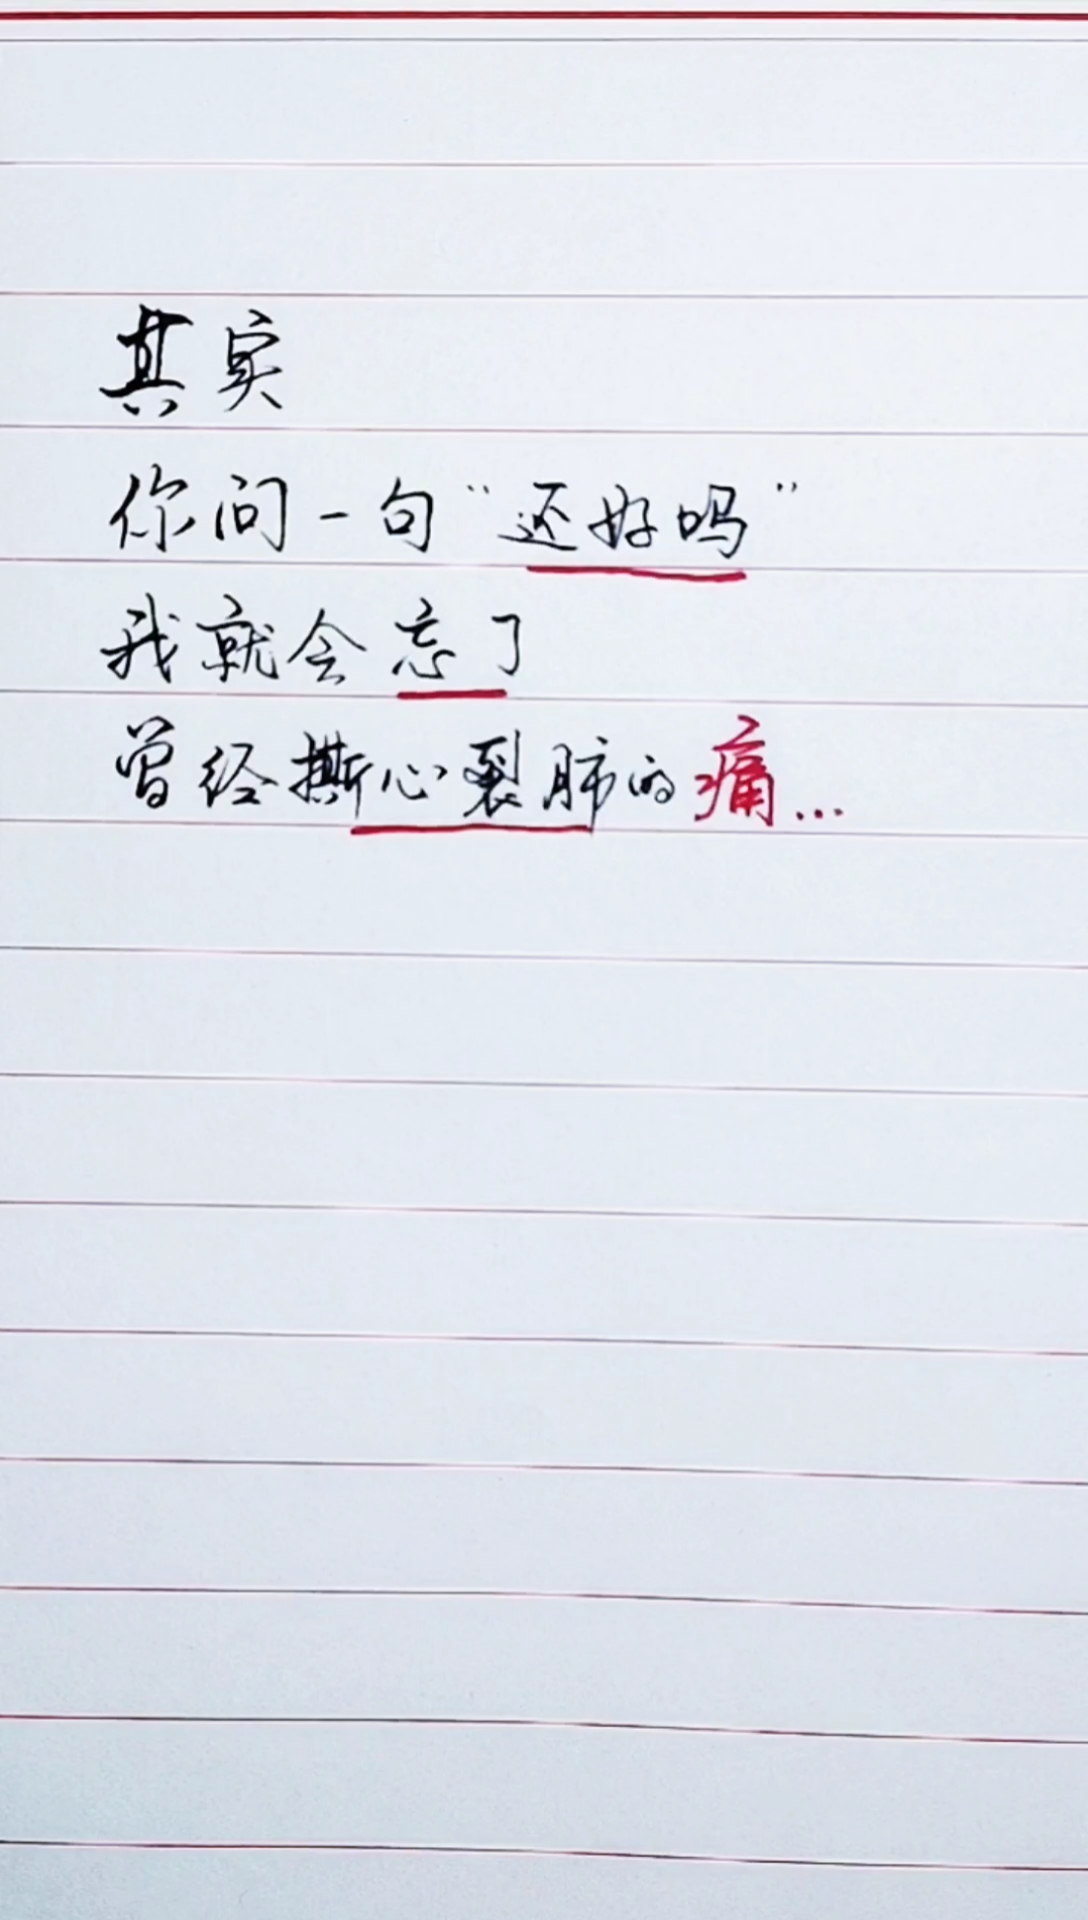 其实
你问一句“还好吗”
我就会忘了
曾经撕心裂肺的痛...